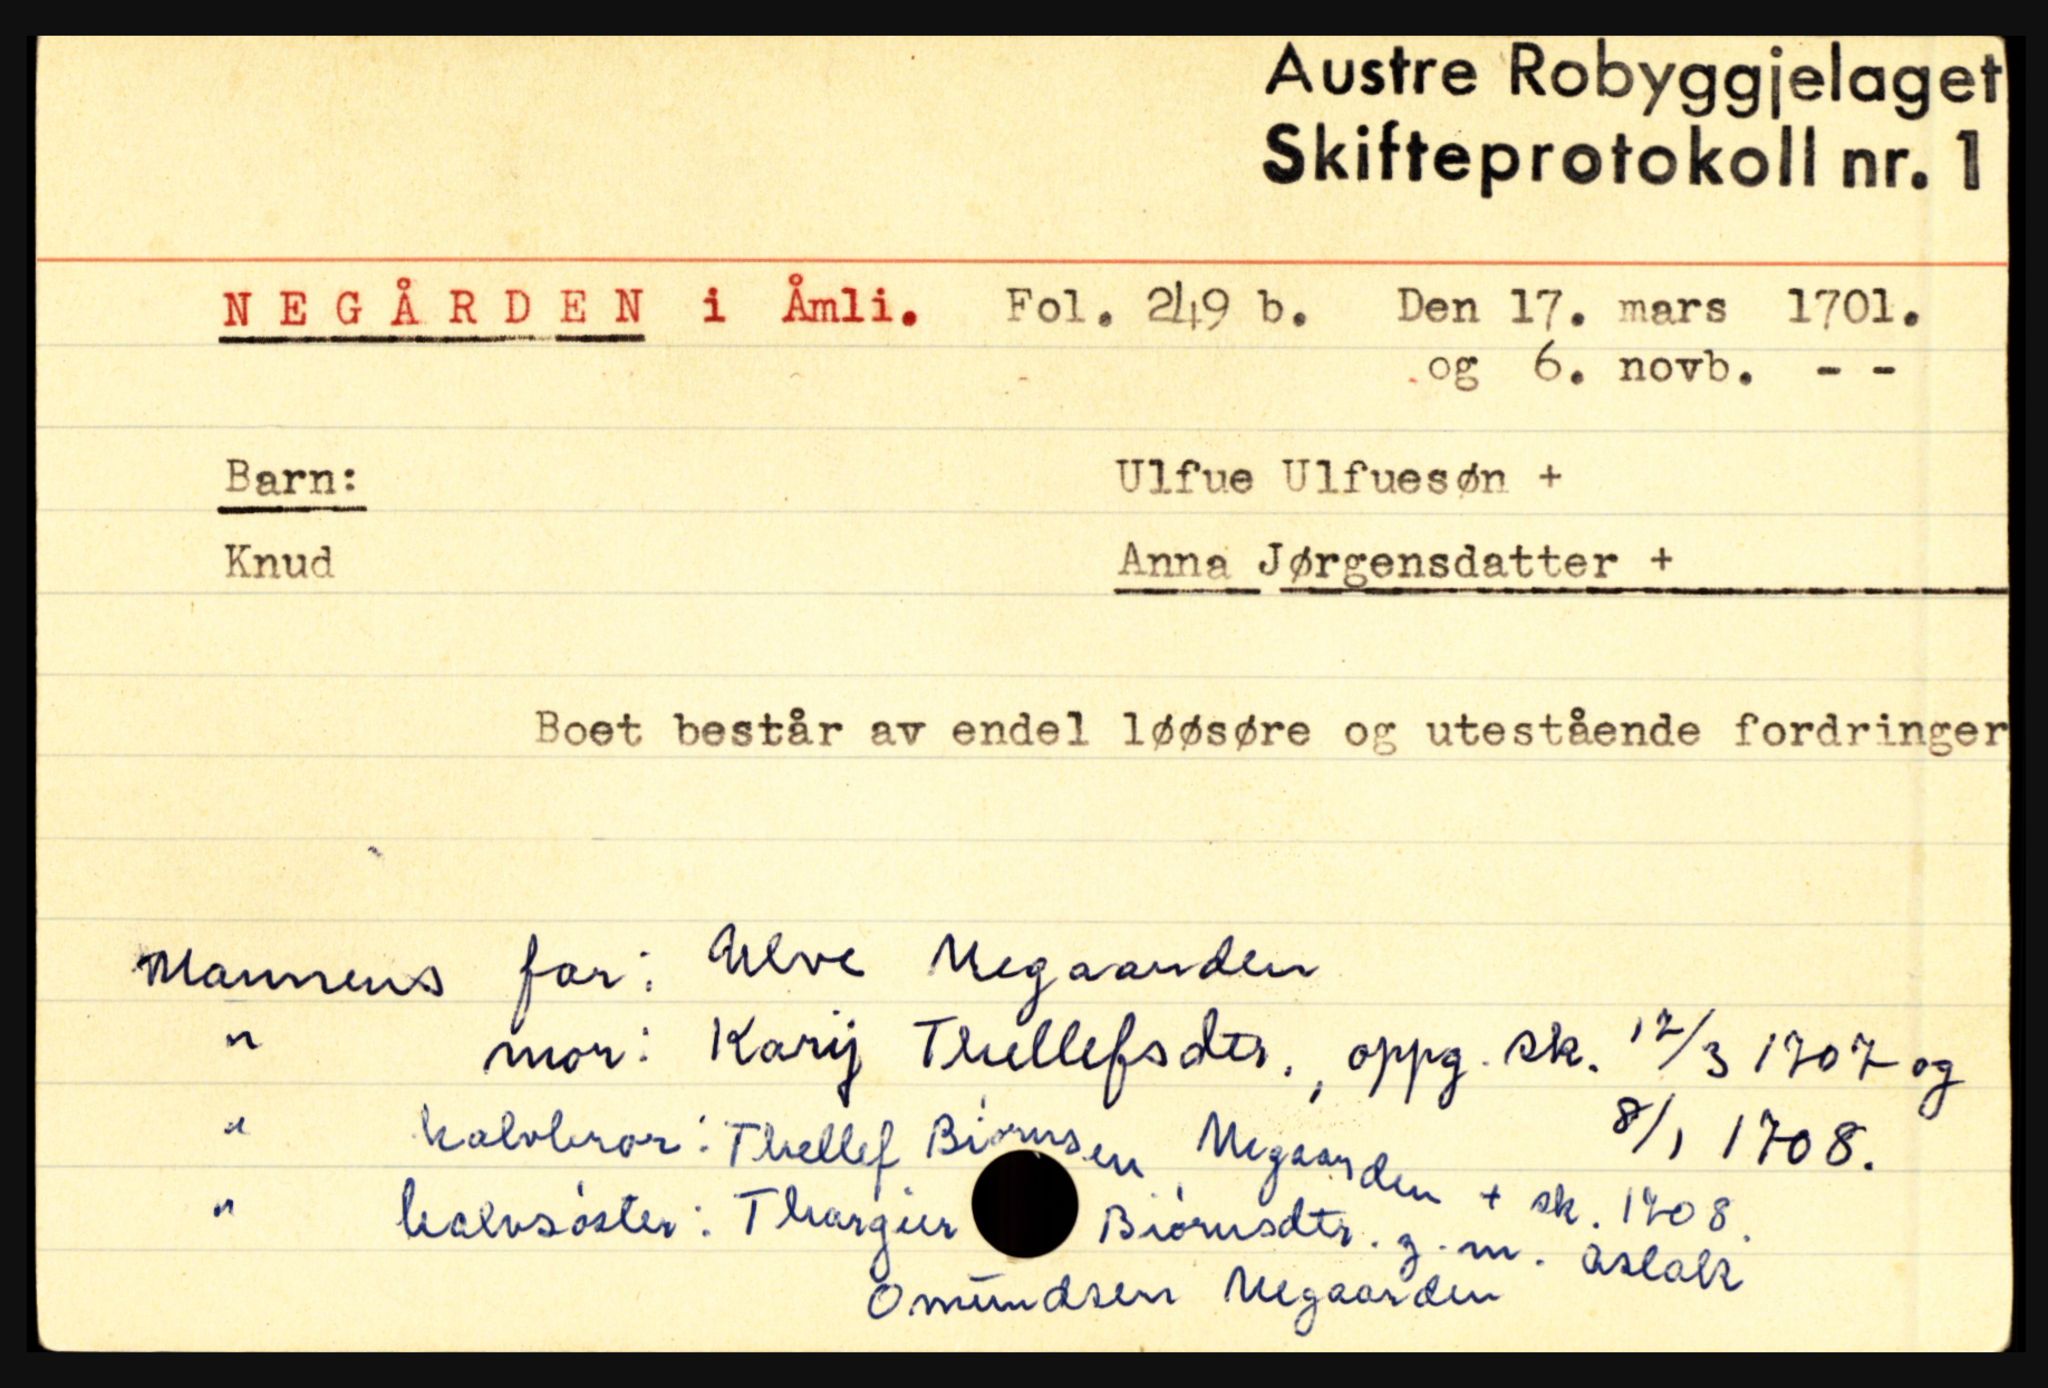 Austre Robyggjelaget
Skifteprotokoll nr. 1
NEGÅRDEN i Åmli. Fol. 249 b. Den 17. mars 1701.
og 6. novb. - -
Barn: Ulfue Ulfuesøn +
Knud Anna Jørgensdatter +
Boet består av endel løøsøre og utestående fordringer
Mannens far: Ulve Negaarden
" mor: Karij Thellefsdtr., oppg. sk. 17/3 1707 og
8/1 1708.
" halvbror: Thellef Biørnsen Negaarden + sk. 1708.
" halvsøster: Thargier Biørnsdtr. g. m. Aslak
Omundsen Negaarden